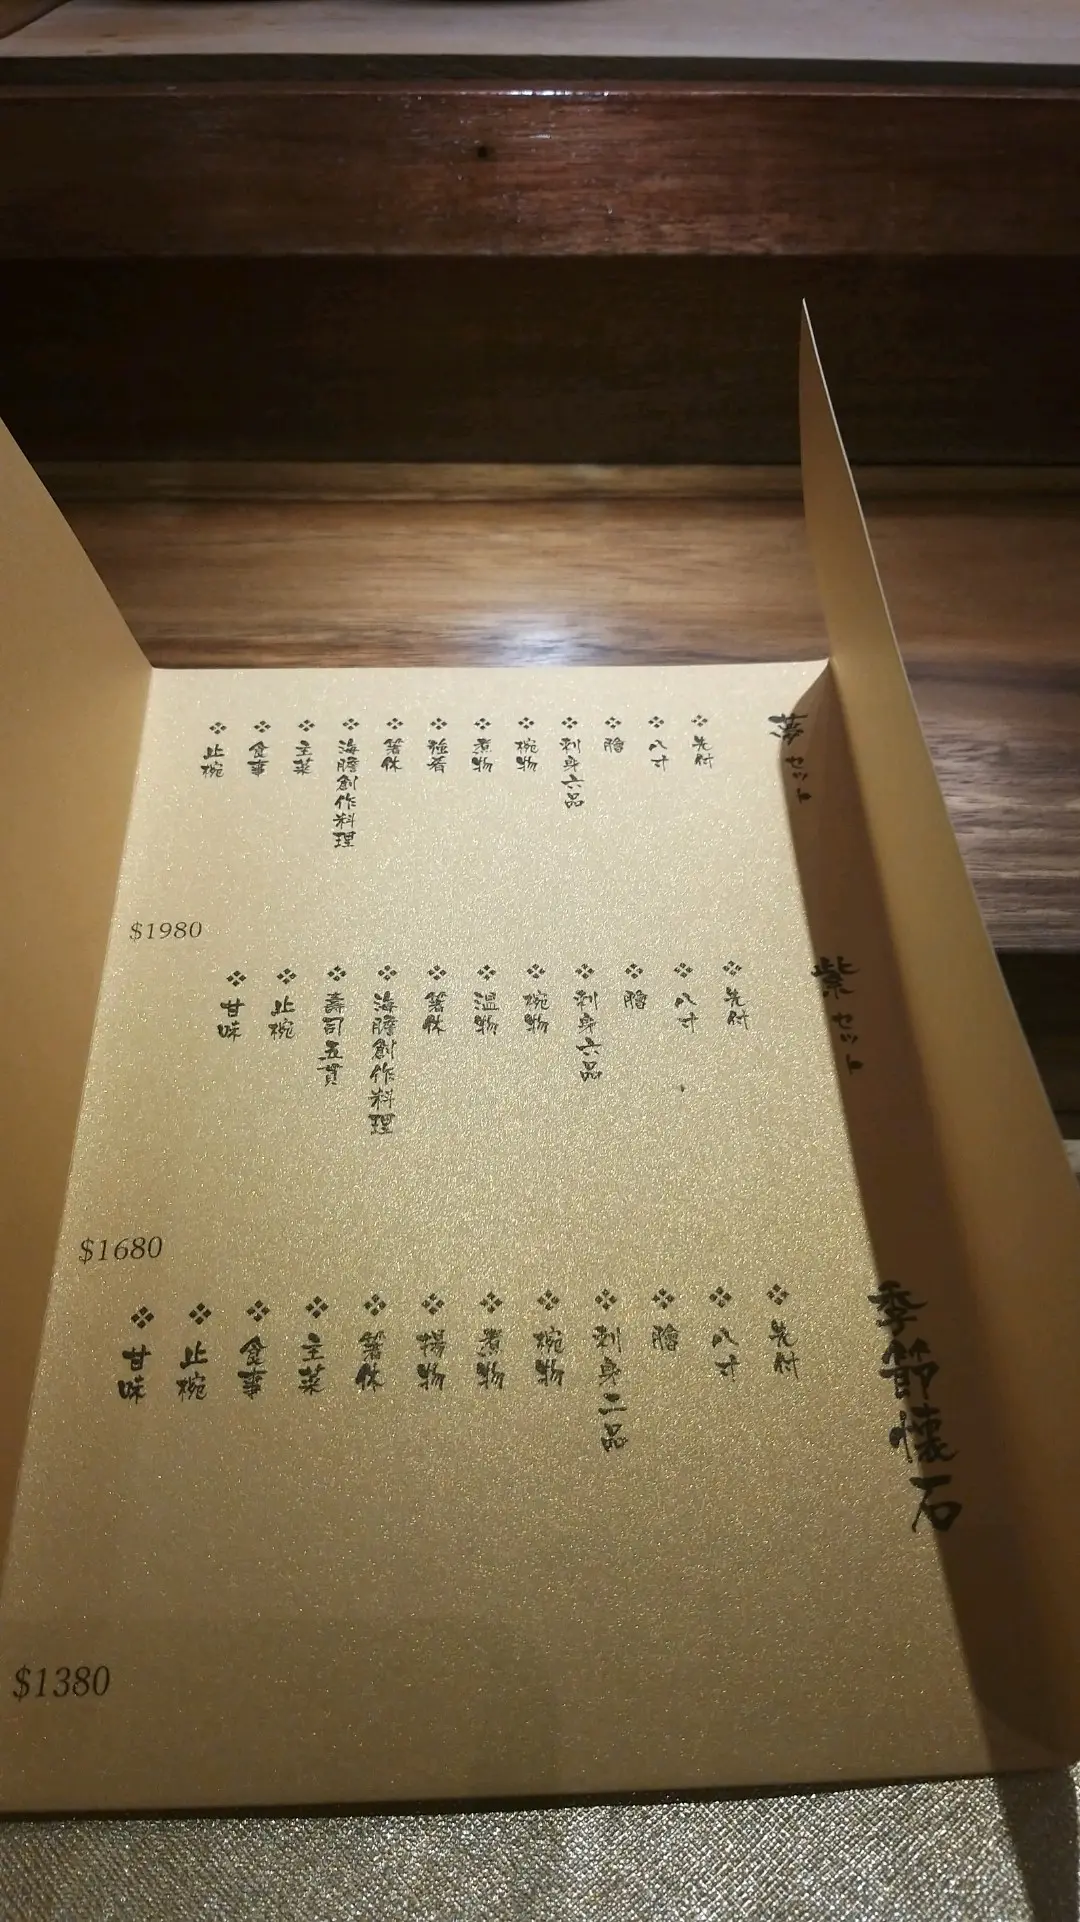 セット
❖先付
❖八寸
❖膾
❖刺身六品
❖椀物
❖煮物
❖強肴
❖箸休
❖海膽創作料理
❖主菜
❖食事
❖止椀
$1980
紫セット
❖先付
❖八寸
❖膾
❖刺身六品
❖椀物
❖温物
❖箸休
❖海膽創作料理
❖壽司五貫
❖止椀
❖甘味
$1680
季節懐石
❖先付
❖八寸
❖膾
❖刺身二品
❖椀物
❖煮物
❖揚物
❖箸休
❖主菜
❖食事
❖止椀
❖甘味
$1380